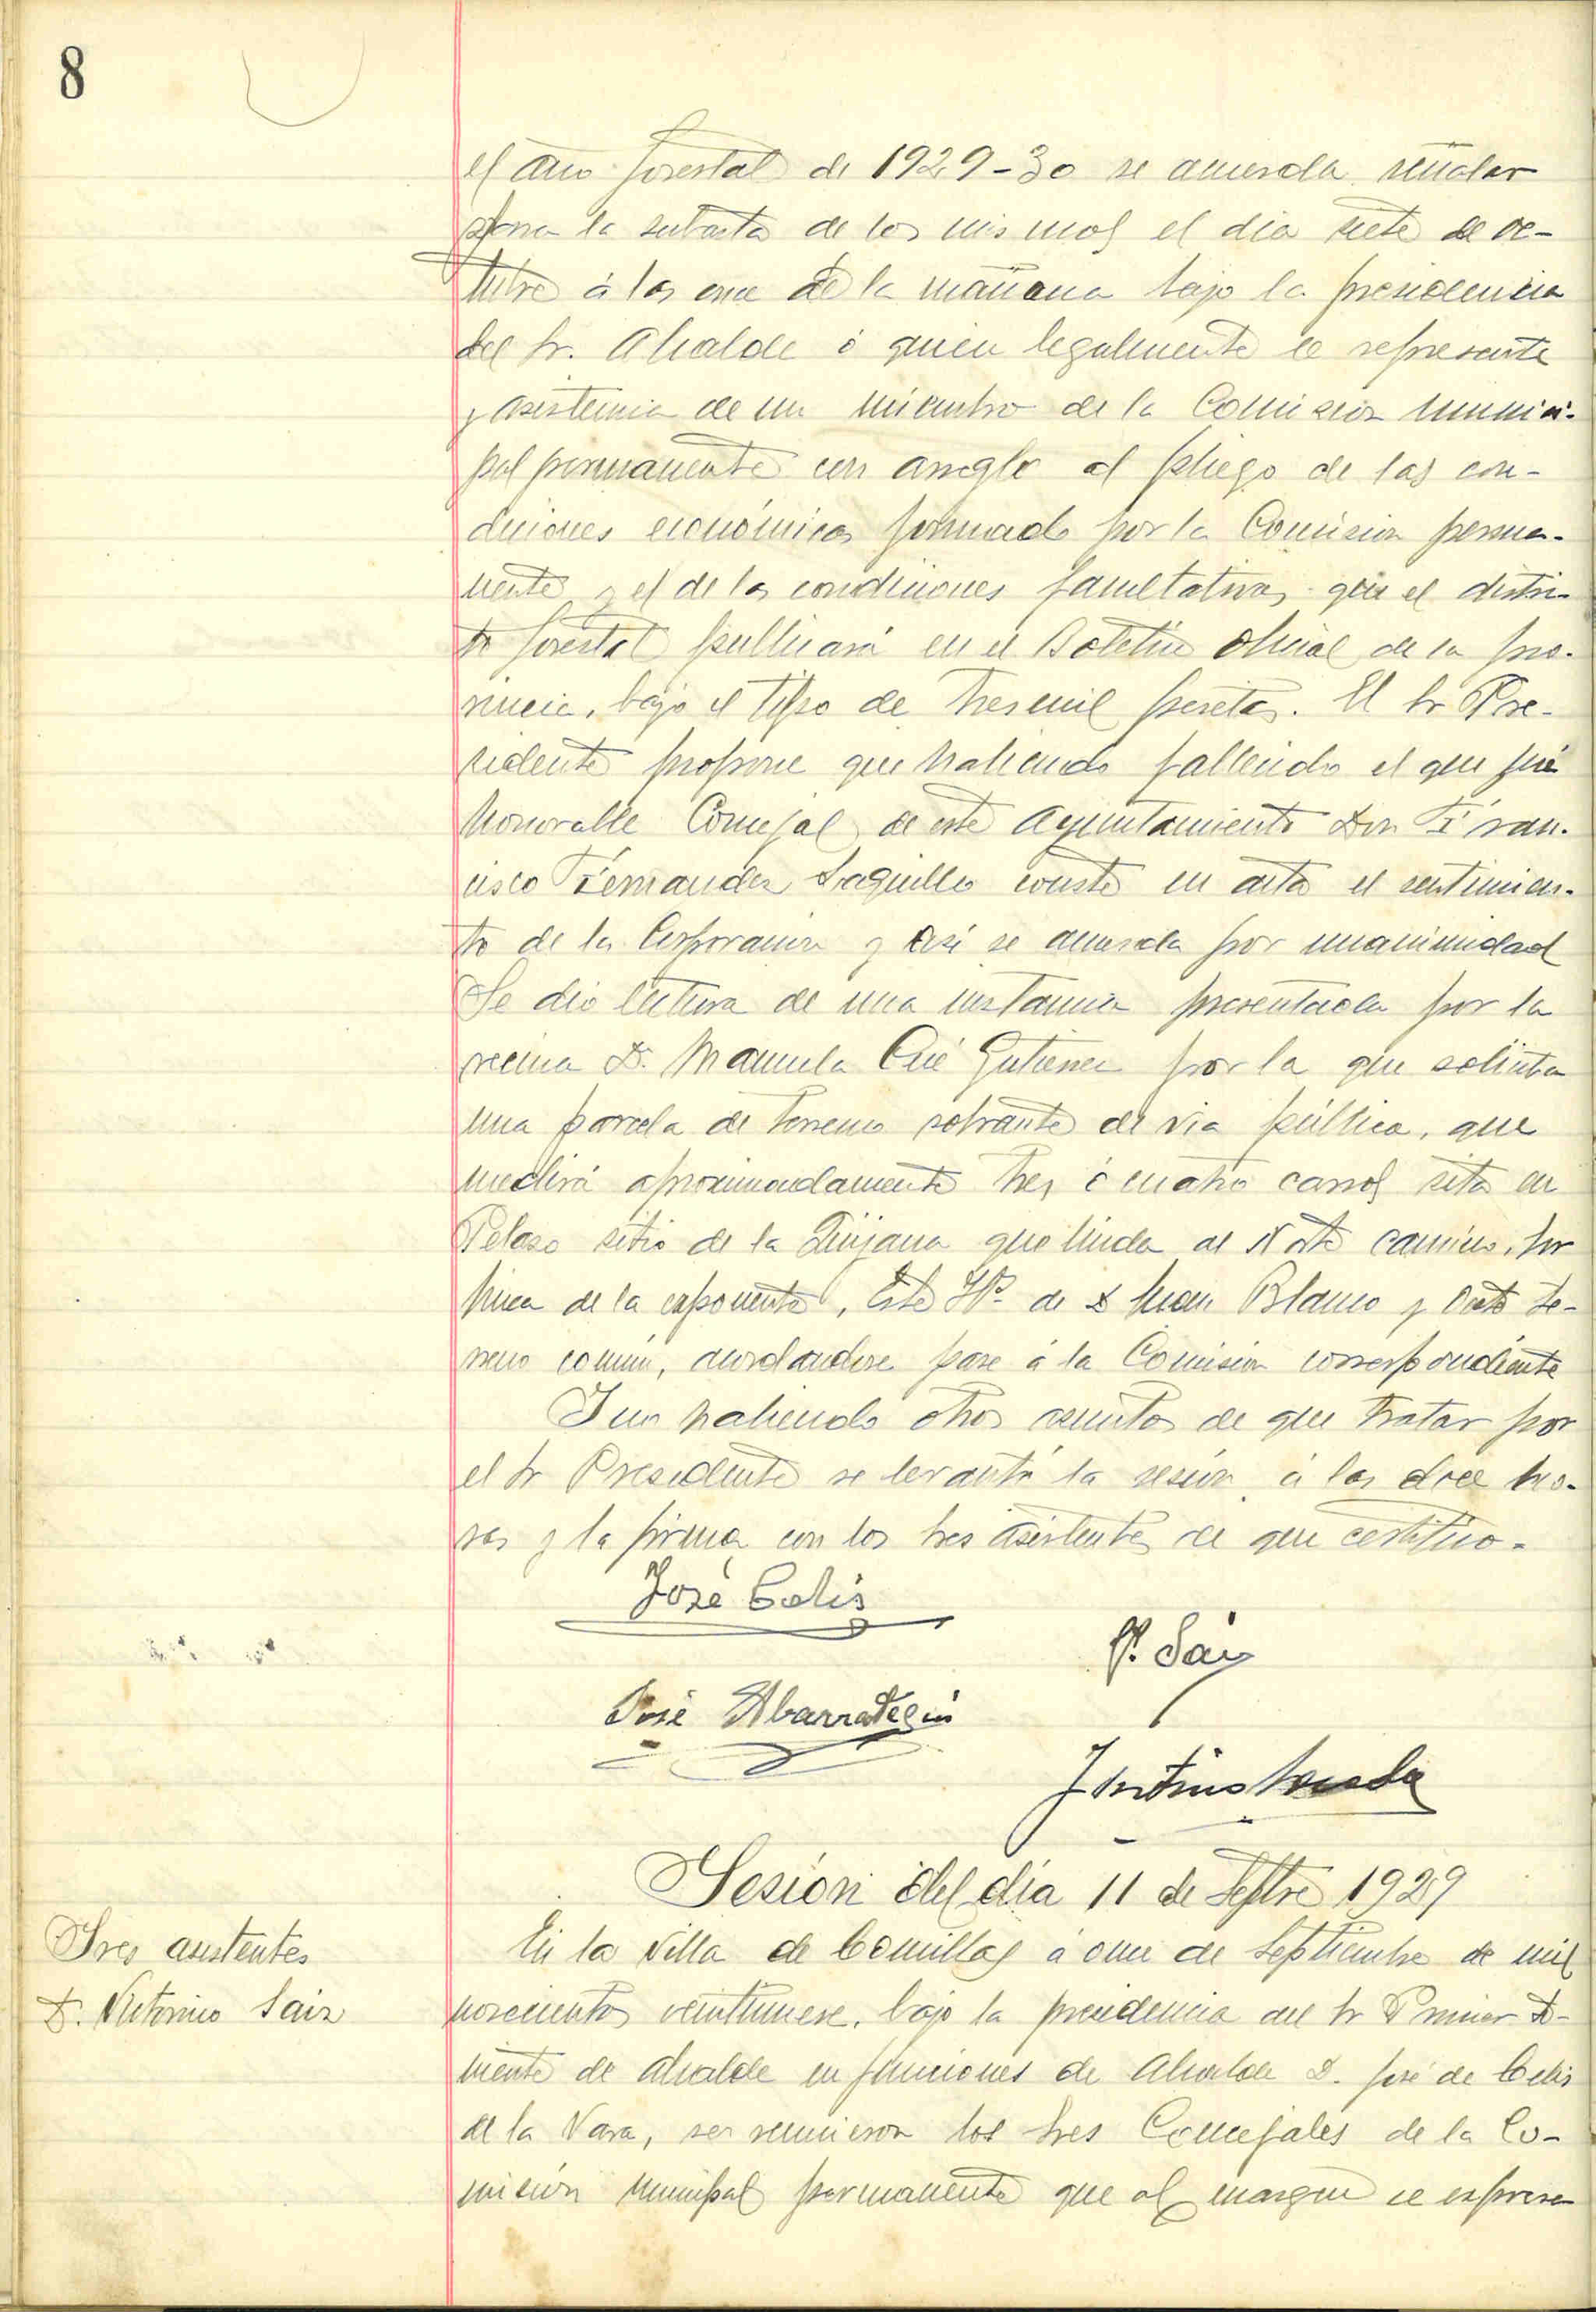 8
el año forestal de 1929-30 se acuerda señalar
para la subasta de los mismos el dia siete de oc-
tubre á las once de la mañana bajo la presidencia
del Sr. Alcalde ó quien legalmente le represente
y asistencia de un miembro de la Comision munici-
pal permanente con arreglo al pliego de las con-
diciones económicas formado por la Comision perma-
nente y el de las condiciones facultativas que el distri-
to forestal publicará en el Boletin oficial de la pro-
vincia, bajo el tipo de tres mil pesetas. El Sr Pre-
sidente propone que habiendo fallecido el que fué
honorable Concejal de este Ayuntamiento Don Fran-
cisco Fernandez conste en acta el sentimien-
to de la Corporacion y asi se acuerda por unanimidad
Se dió lectura de una instancia presentada por la
vecina Dª. Manuela Cué Gutierrez por la que solicita
una parcela de terreno sobrante de via pública, que
medirá aproximadamente tres ó cuatro carros sita en
sitio de la que linda al Norte camino, Sur
finca de la exponente, Este Hºs de D Juan Blanco y Oeste te-
rreno comun, acordandose pase á la Comision correspondiente
Y no habiendo otros asuntos de que tratar por
el Sr Presidente se levantó la sesión á las doce ho-
ras y la firma con los tres asistentes de que certifico.
José Celis
V. Sainz
José Abarrategui
Sesión del dia 11 de Septbre 1929
Sres asistentes
D. Victorino Sainz
En la Villa de Comillas á once de Septiembre de mil
novecientos veintinueve, bajo la presidencia del Sr Primer Te-
niente de alcalde en funciones de Alcalde D. José de Celis
de la Vara, ser reunieron los tres Concejales de la Co-
mision municipal permanente que al margen se expresan